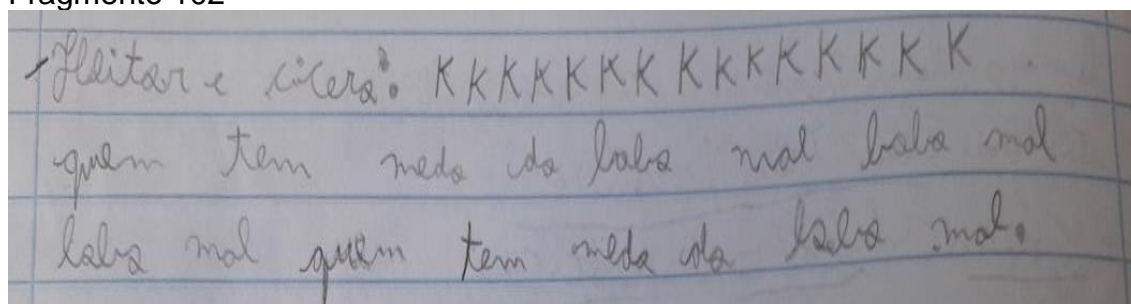 Fragmento 102
-Heitor e cicero: KKKKKKKKKKKKKKKK.
quem tem medo do lobo mal lobo mal
lobo mal quem tem medo do lobo mal.